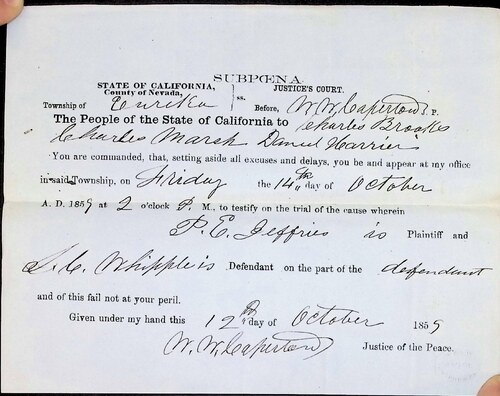 SUBPŒNA.
STATE OF CALIFORNIA, JUSTICE'S COURT.
County of Nevada, ss.
Township of Eureka Before, W. W. Caperton J. P.
The People of the State of California to Charles Brookes
Charles Marsh Daniel Harrier
You are commanded, that, setting aside all excuses and delays, you be and appear at my office
in said Township, on Friday the 14th day of October
A. D. 1859 at 2 o'clock P. M., to testify on the trial of the cause wherein
P. E. Jeffries is Plaintiff and
S. C. Whipple is Defendant on the part of the defendant
and of this fail not at your peril.
Given under my hand this 12th day of October 1859
W. W. Caperton Justice of the Peace.